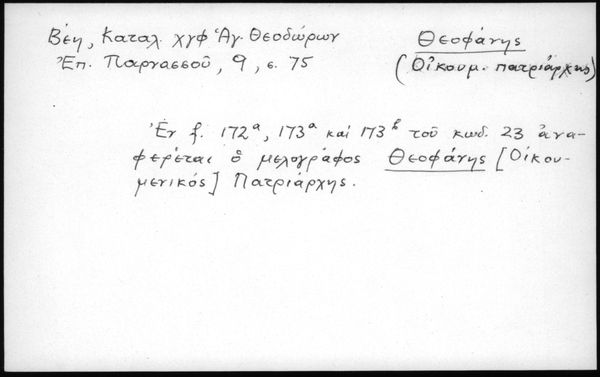 Βέη, Καταλ. χγφ Ἁγ. Θεοδώρων
Θεοφάνης
Ἐπ. Παρνασσοῦ, 9, σ. 75
(Οἰκουμ. πατριάρχης)
Ἐν f. 172ᵃ, 173ᵃ καὶ 173ᵇ τοῦ κωδ. 23 ἀνα-
φέρεται ὁ μελογράφος Θεοφάνης [Οἰκου-
μενικός] Πατριάρχης.